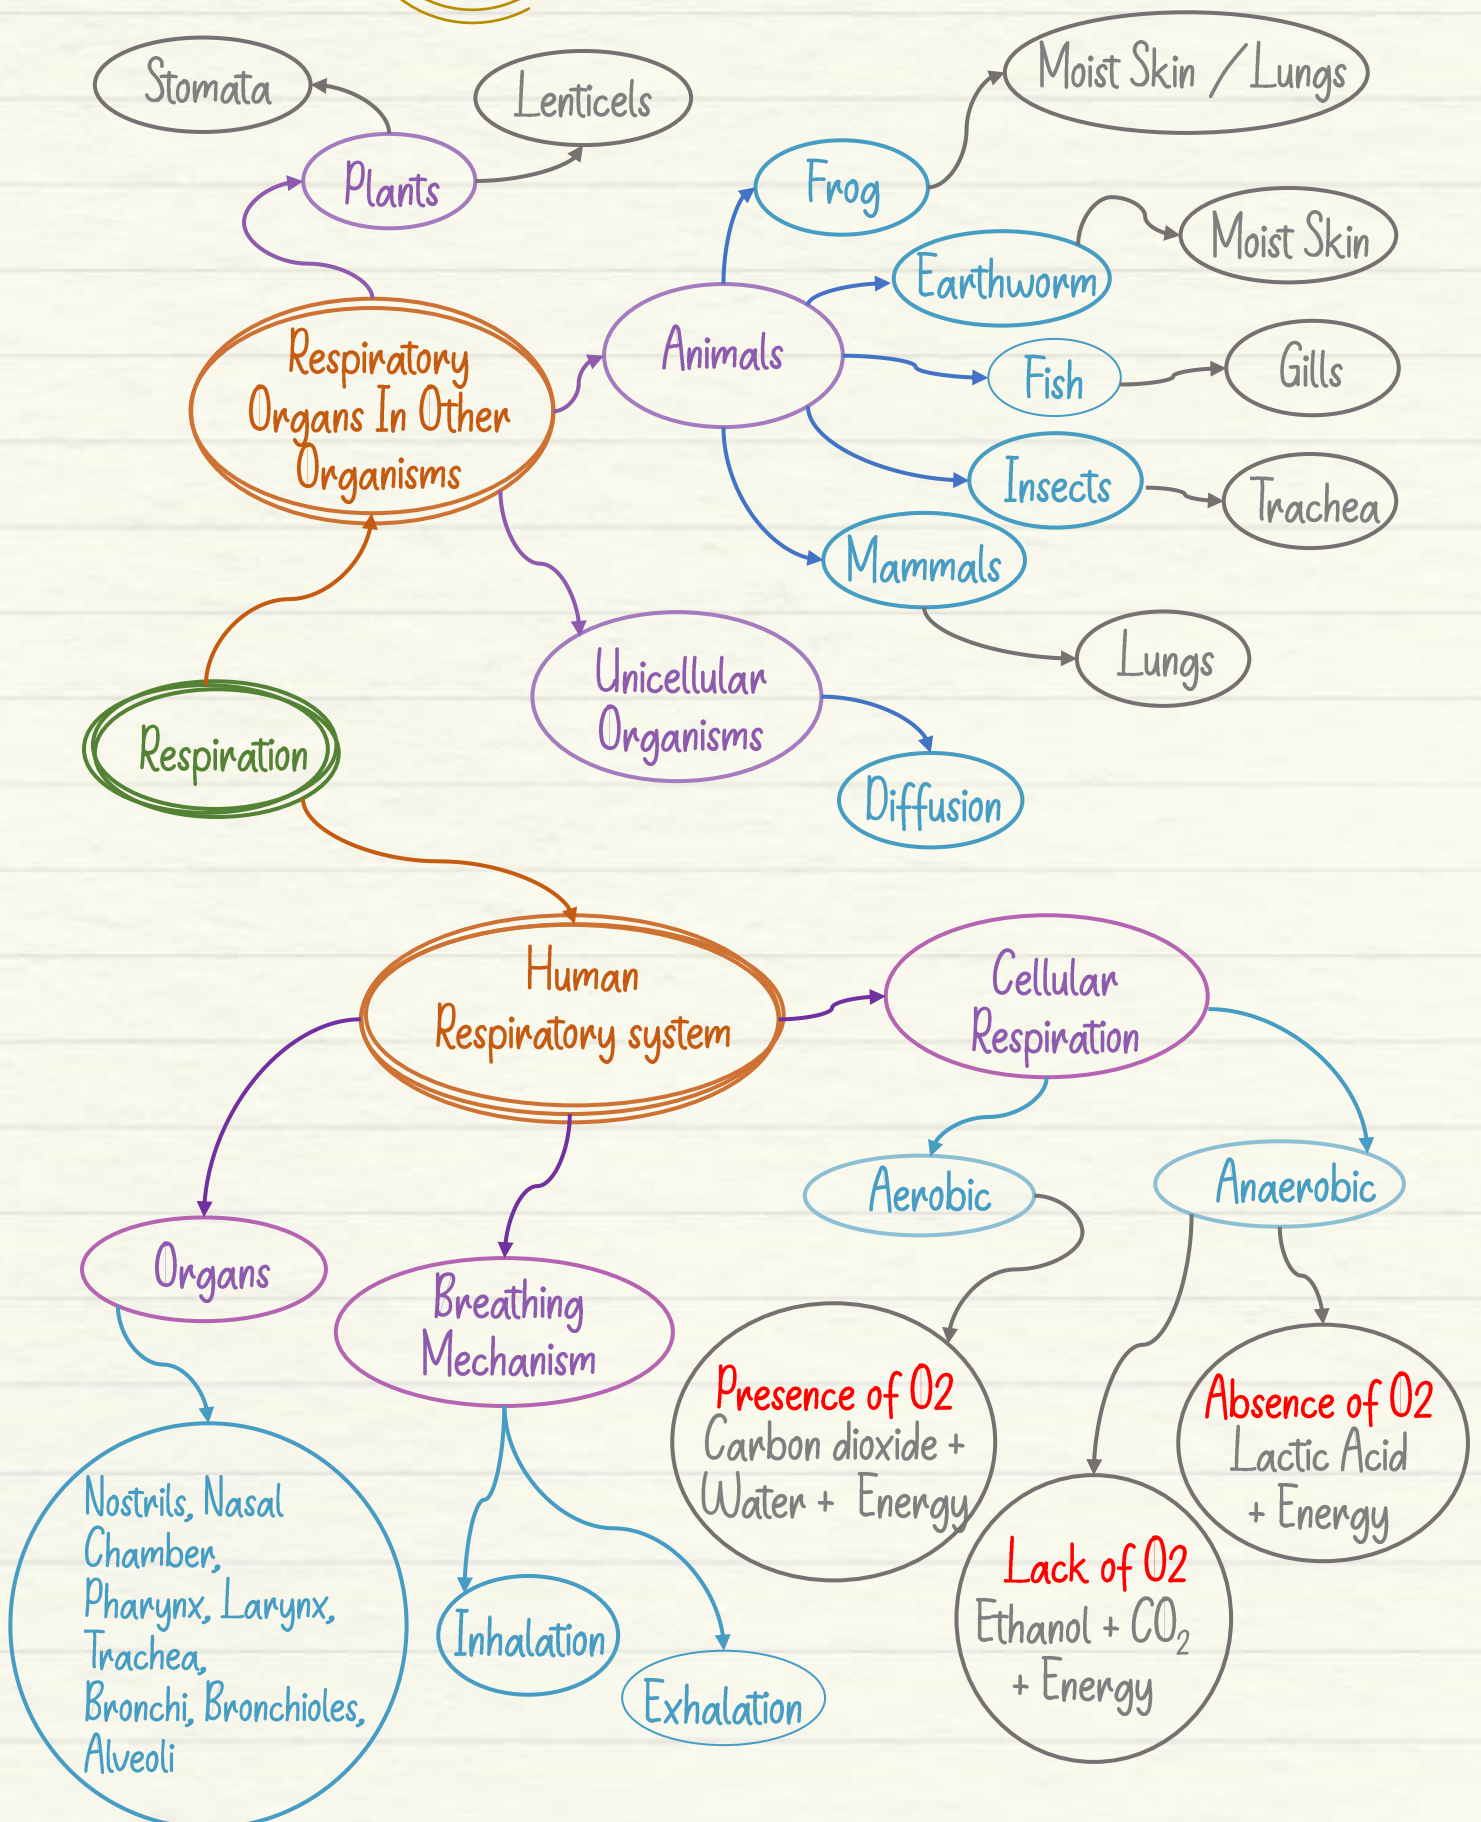 Stomata
Lenticels
Moist Skin / Lungs
Plants
Frog
Moist Skin
Earthworm
Animals
Respiratory
Organs In Other
Organisms
Fish
Gills
Insects
Trachea
Mammals
Lungs
Unicellular
Organisms
Respiration
Diffusion
Human
Respiratory system
Cellular
Respiration
Aerobic
Anaerobic
Organs
Breathing
Mechanism
Presence of O2
Carbon dioxide +
Water + Energy
Absence of O2
Lactic Acid
+ Energy
Lack of O2
Ethanol + CO₂
+ Energy
Nostrils, Nasal
Chamber,
Pharynx, Larynx,
Trachea,
Bronchi, Bronchioles,
Alveoli
Inhalation
Exhalation